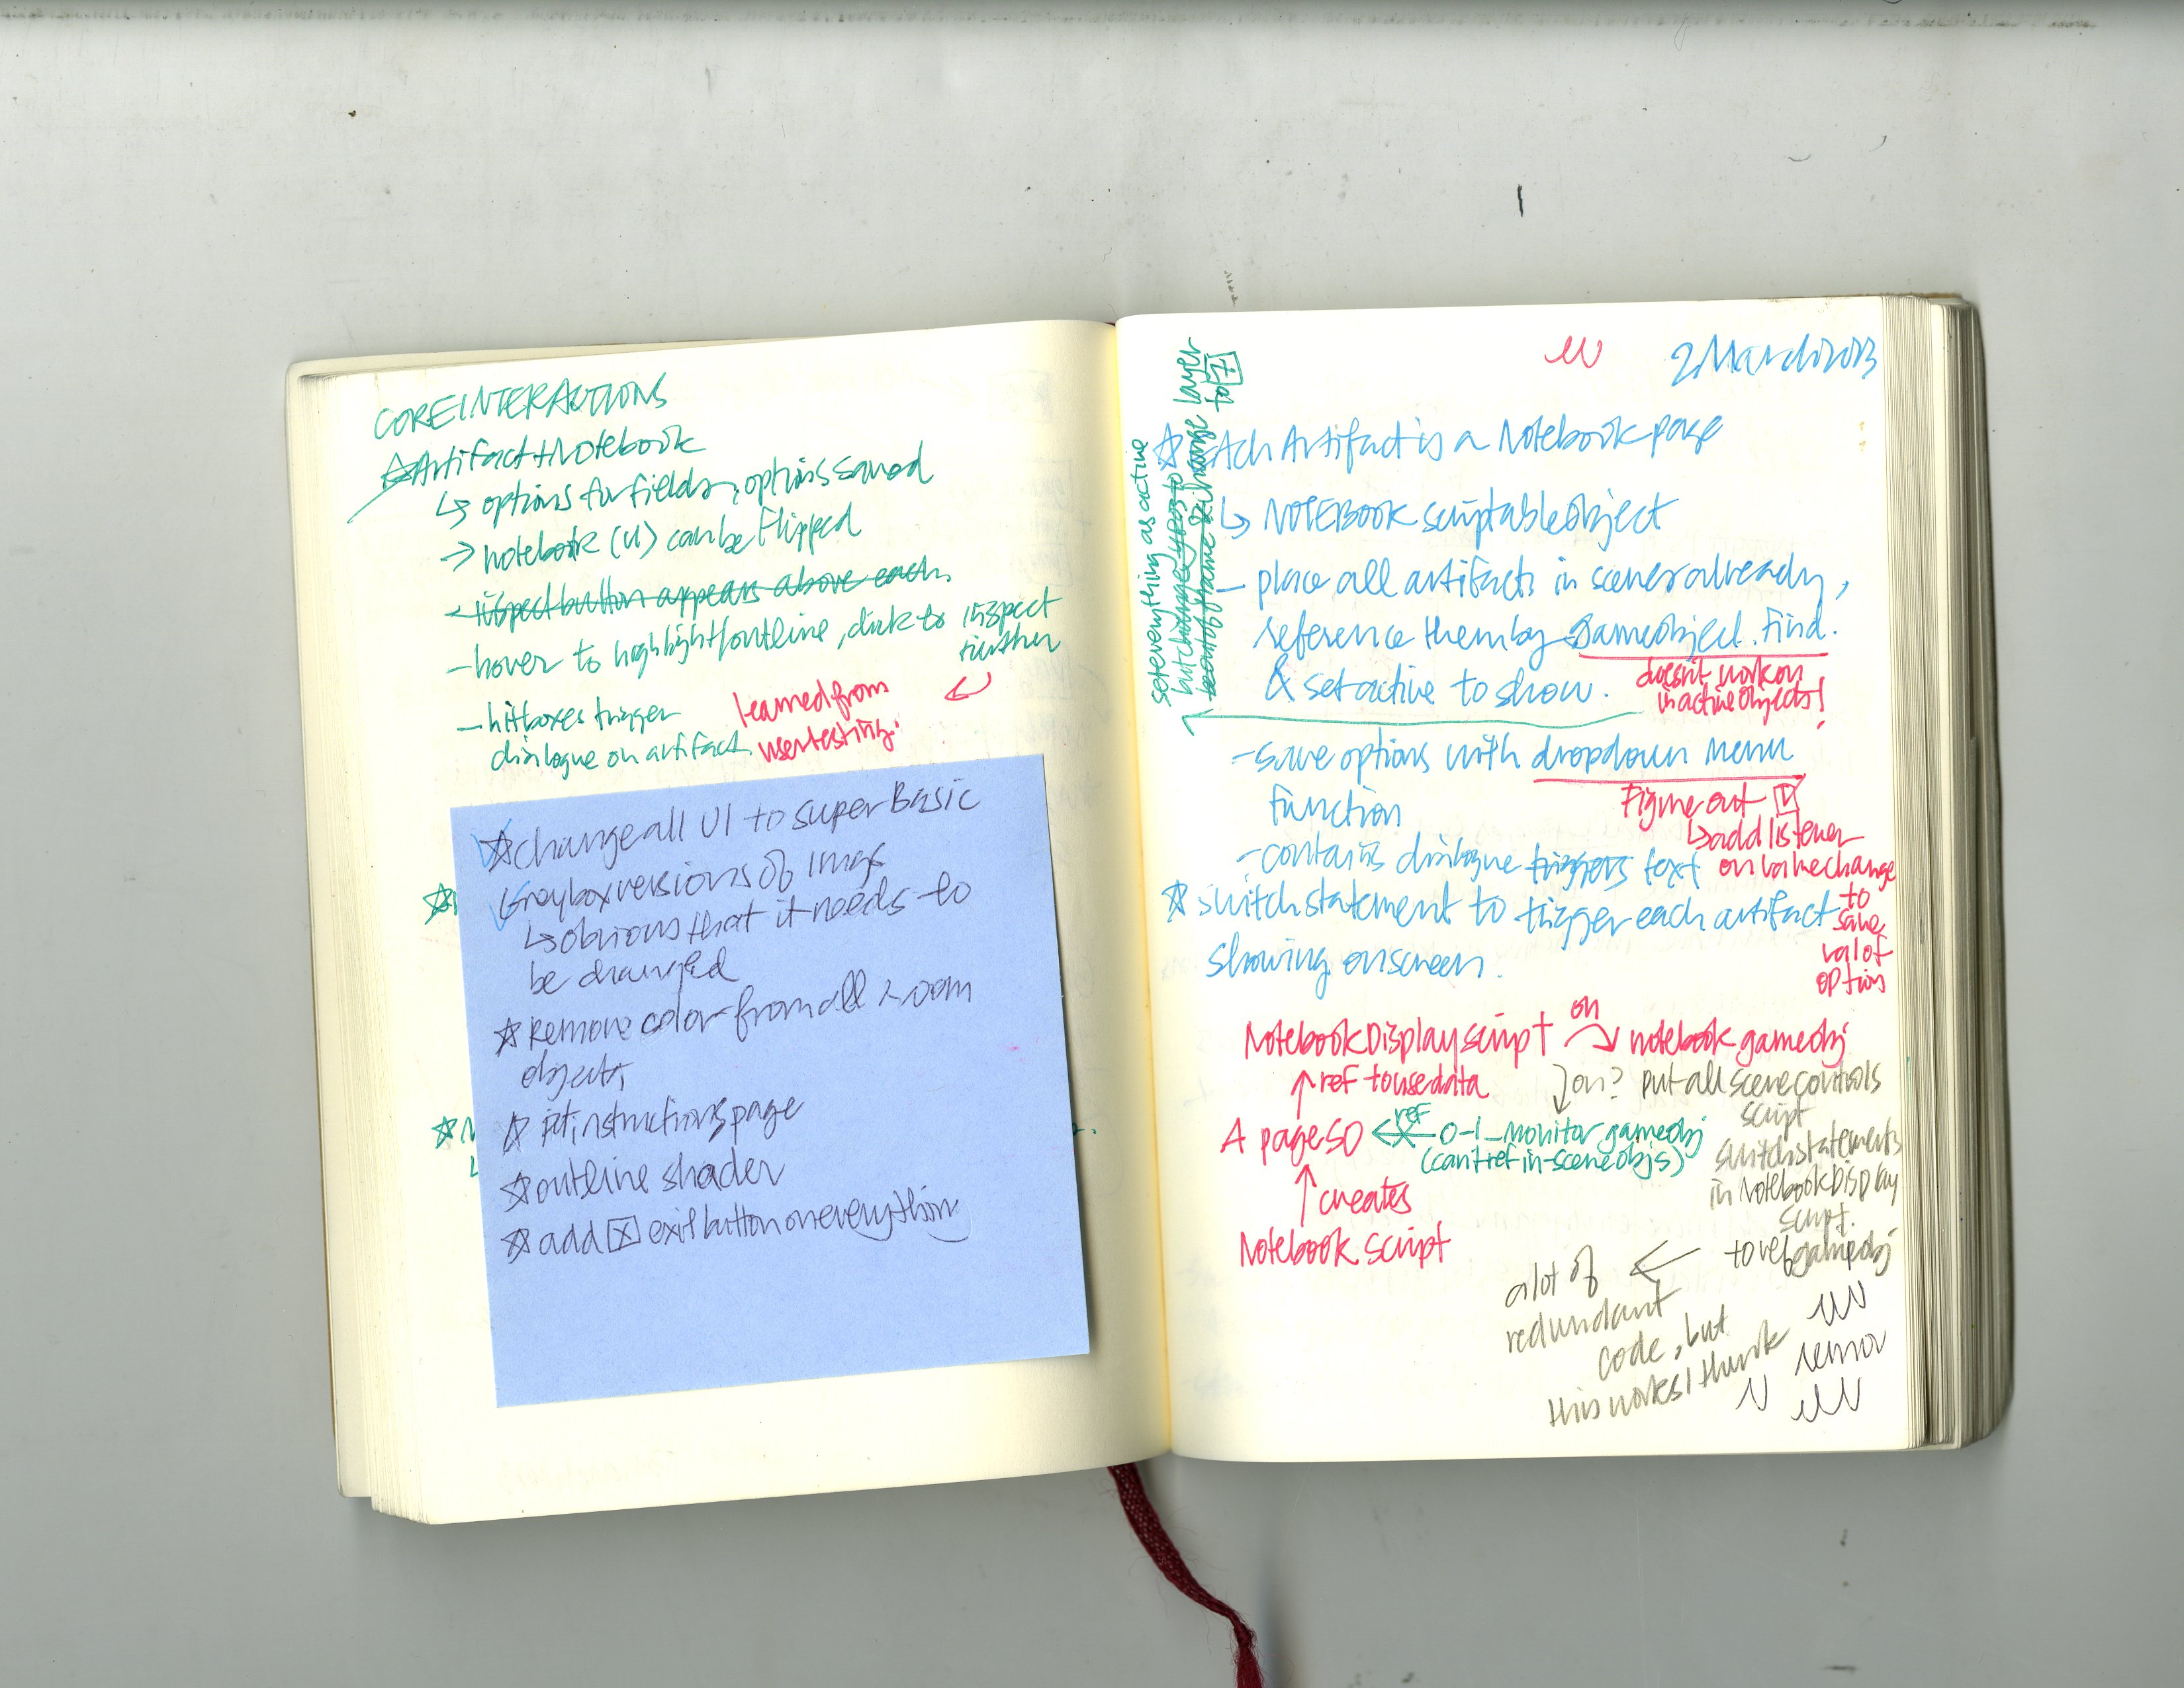 CORE INTERACTIONS
☆ Artifact + Notebook
↳ options for fields, options saved
→ notebook (UI) can be flipped
- inspect button appears above each.
- hover to highlight/outline, click to inspect
further
- hitboxes trigger
dialogue on artifact.
learned from
user testing.
☆ change all UI to super Basic
Greybox versions of image
↳ obvious that it needs to
be changed
☆ Remove color from all room
objects
☆ instructions page
☆ outline shader
☆ add [x] exit button on everything
2 March 2023
☆ Each Artifact is a Notebook page
↳ NOTEBOOK scriptableobject
- place all artifacts in scene already,
reference them by Gameobject.Find.
& setactive to show.
doesn't work on
inactive objects!
set everything as active
but change ypos to
be out of frame change layer
to
- save options with dropdown menu
function
Figure out
↳ add listener
on value change
to
save
val of
option
- contains dialogue triggers text
☆ switch statement to trigger each artifact
showing onscreen.
NotebookDisplay script on → notebook gameobj
↑ ref to use data
on? put all scene controls
script
switch statements
in NotebookDisplay
script.
to ref gameobj
A page SO ← ref 0-1_monitor gameobj
(can't ref in-scene objs)
↑ creates
Notebook script
a lot of
redundant
code, but
this works I think